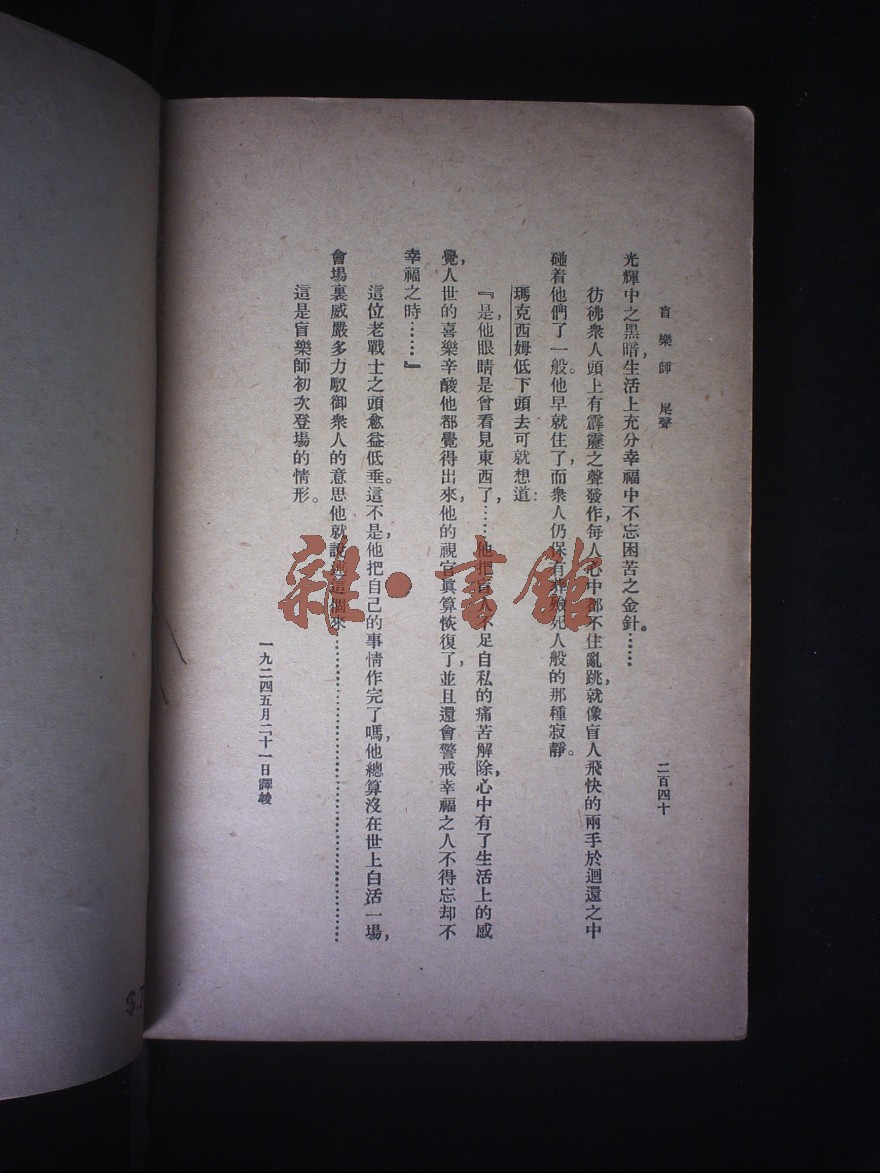 盲樂師 尾聲 二百四十
光輝中之黑暗，生活上充分幸福中不忘困苦之金針。……
彷彿衆人頭上有霹靂之聲發作，每人心中都不住亂跳，就像盲人飛快的兩手於迴還之中
碰着他們了一般。他早就住了，而衆人仍保有死人般的那種寂靜。
瑪克西姆低下頭去可就想道：
『是，他眼睛是曾看見東西了，……他把盲人不足自私的痛苦解除，心中有了生活上的感
覺，人世的喜樂辛酸他都覺得出來，他的視官眞算恢復了，並且還會警戒幸福之人不得忘却不
幸福之時……』
這位老戰士之頭愈益低垂。這不是，他把自己的事情作完了嗎，他總算沒在世上白活一場，
會場裏威嚴多力馭御衆人的意思他就說這個來………………………………
這是盲樂師初次登場的情形。
一九二四五月二十一日譯竣
雜·書館